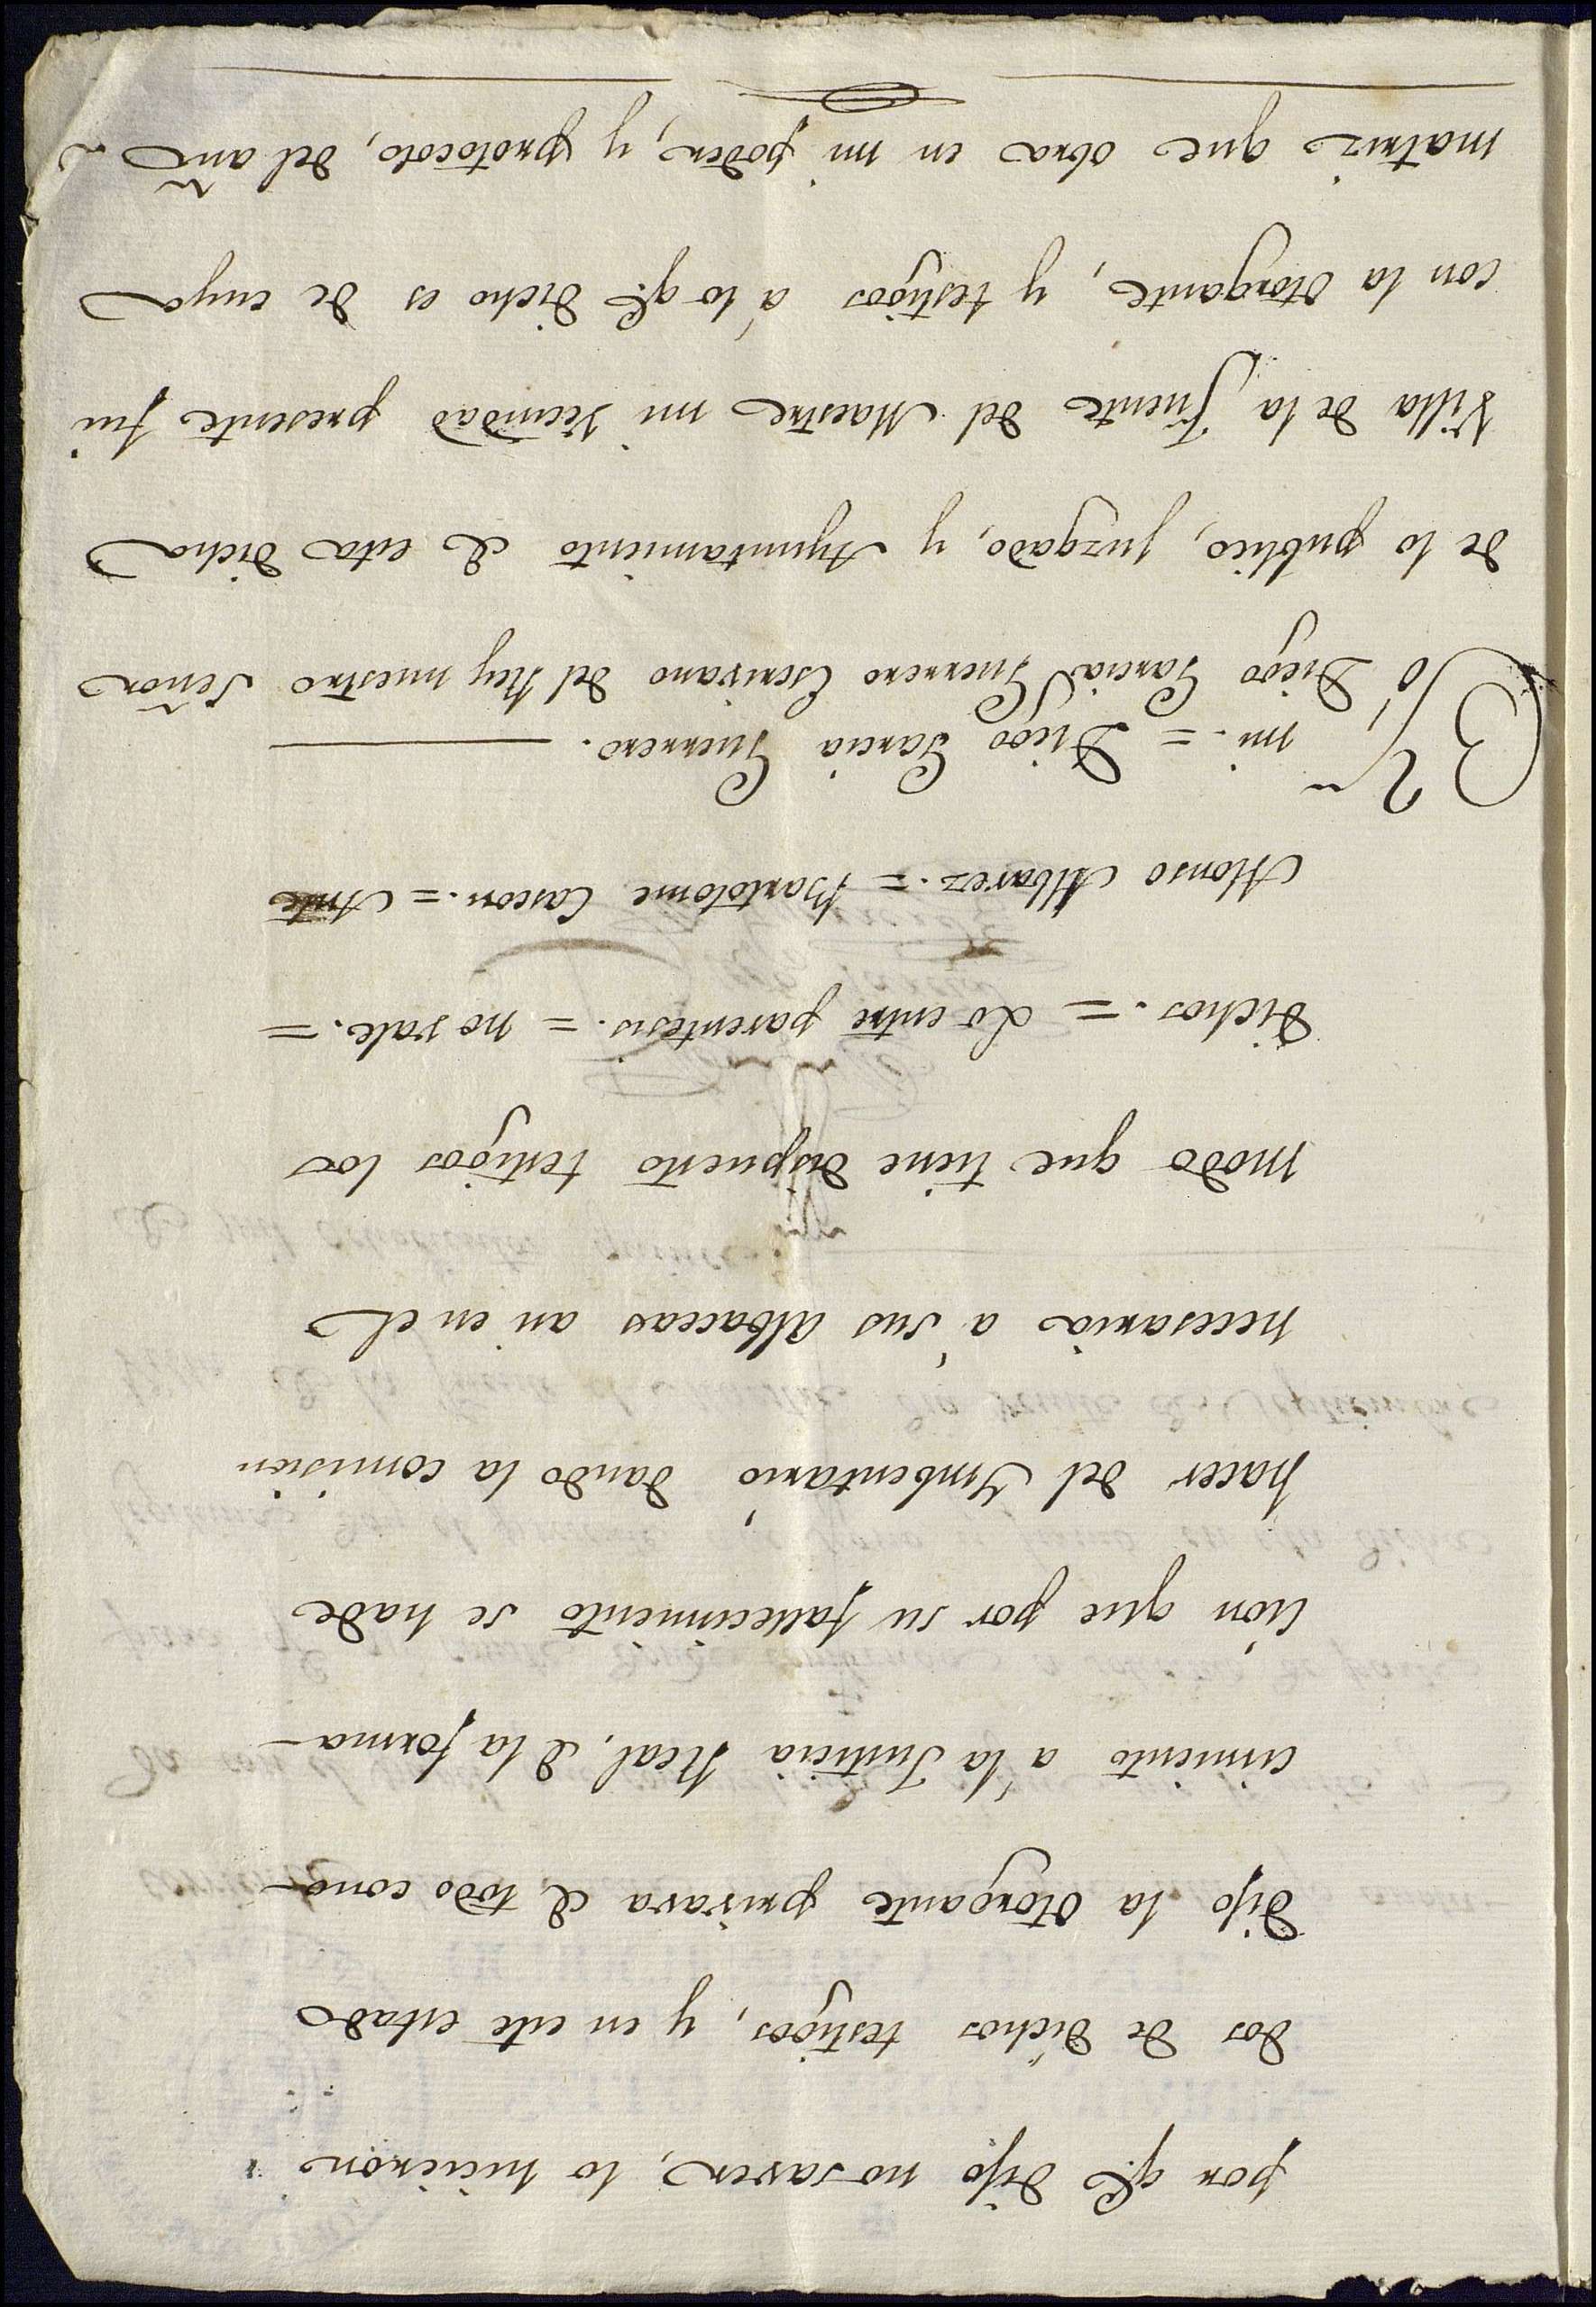 por qe. dijo no saver, lo hicieron
dos de dichos testigos, y en este estado
dijo la otorgante privava de todo cono-
cimiento a la Justicia Real, de la forma-
ción que por su fallecimiento se hade
hacer del Ymbentario, dando la comision
necesaria á sus albaceas an en el
modo que tiene dispuesto testigos los
dichos. = Lo entre parentesis. = no vale. =
Alonso Albarez. = Bartolome Cascon. = Ante
mi. = Diego Garcia Guerrero.
Yo, Diego Garcia Guerrero Escrivano del Rey nuestro Señor
de lo publico, Juzgado, y Ayuntamiento de esta dicha
Villa de la Fuente del Maestre mi Vecindad presente fui
con la otorgante, y testigos á lo qe. dicho es de cuya
matriz que obra en mi poder, y protocolo, del año